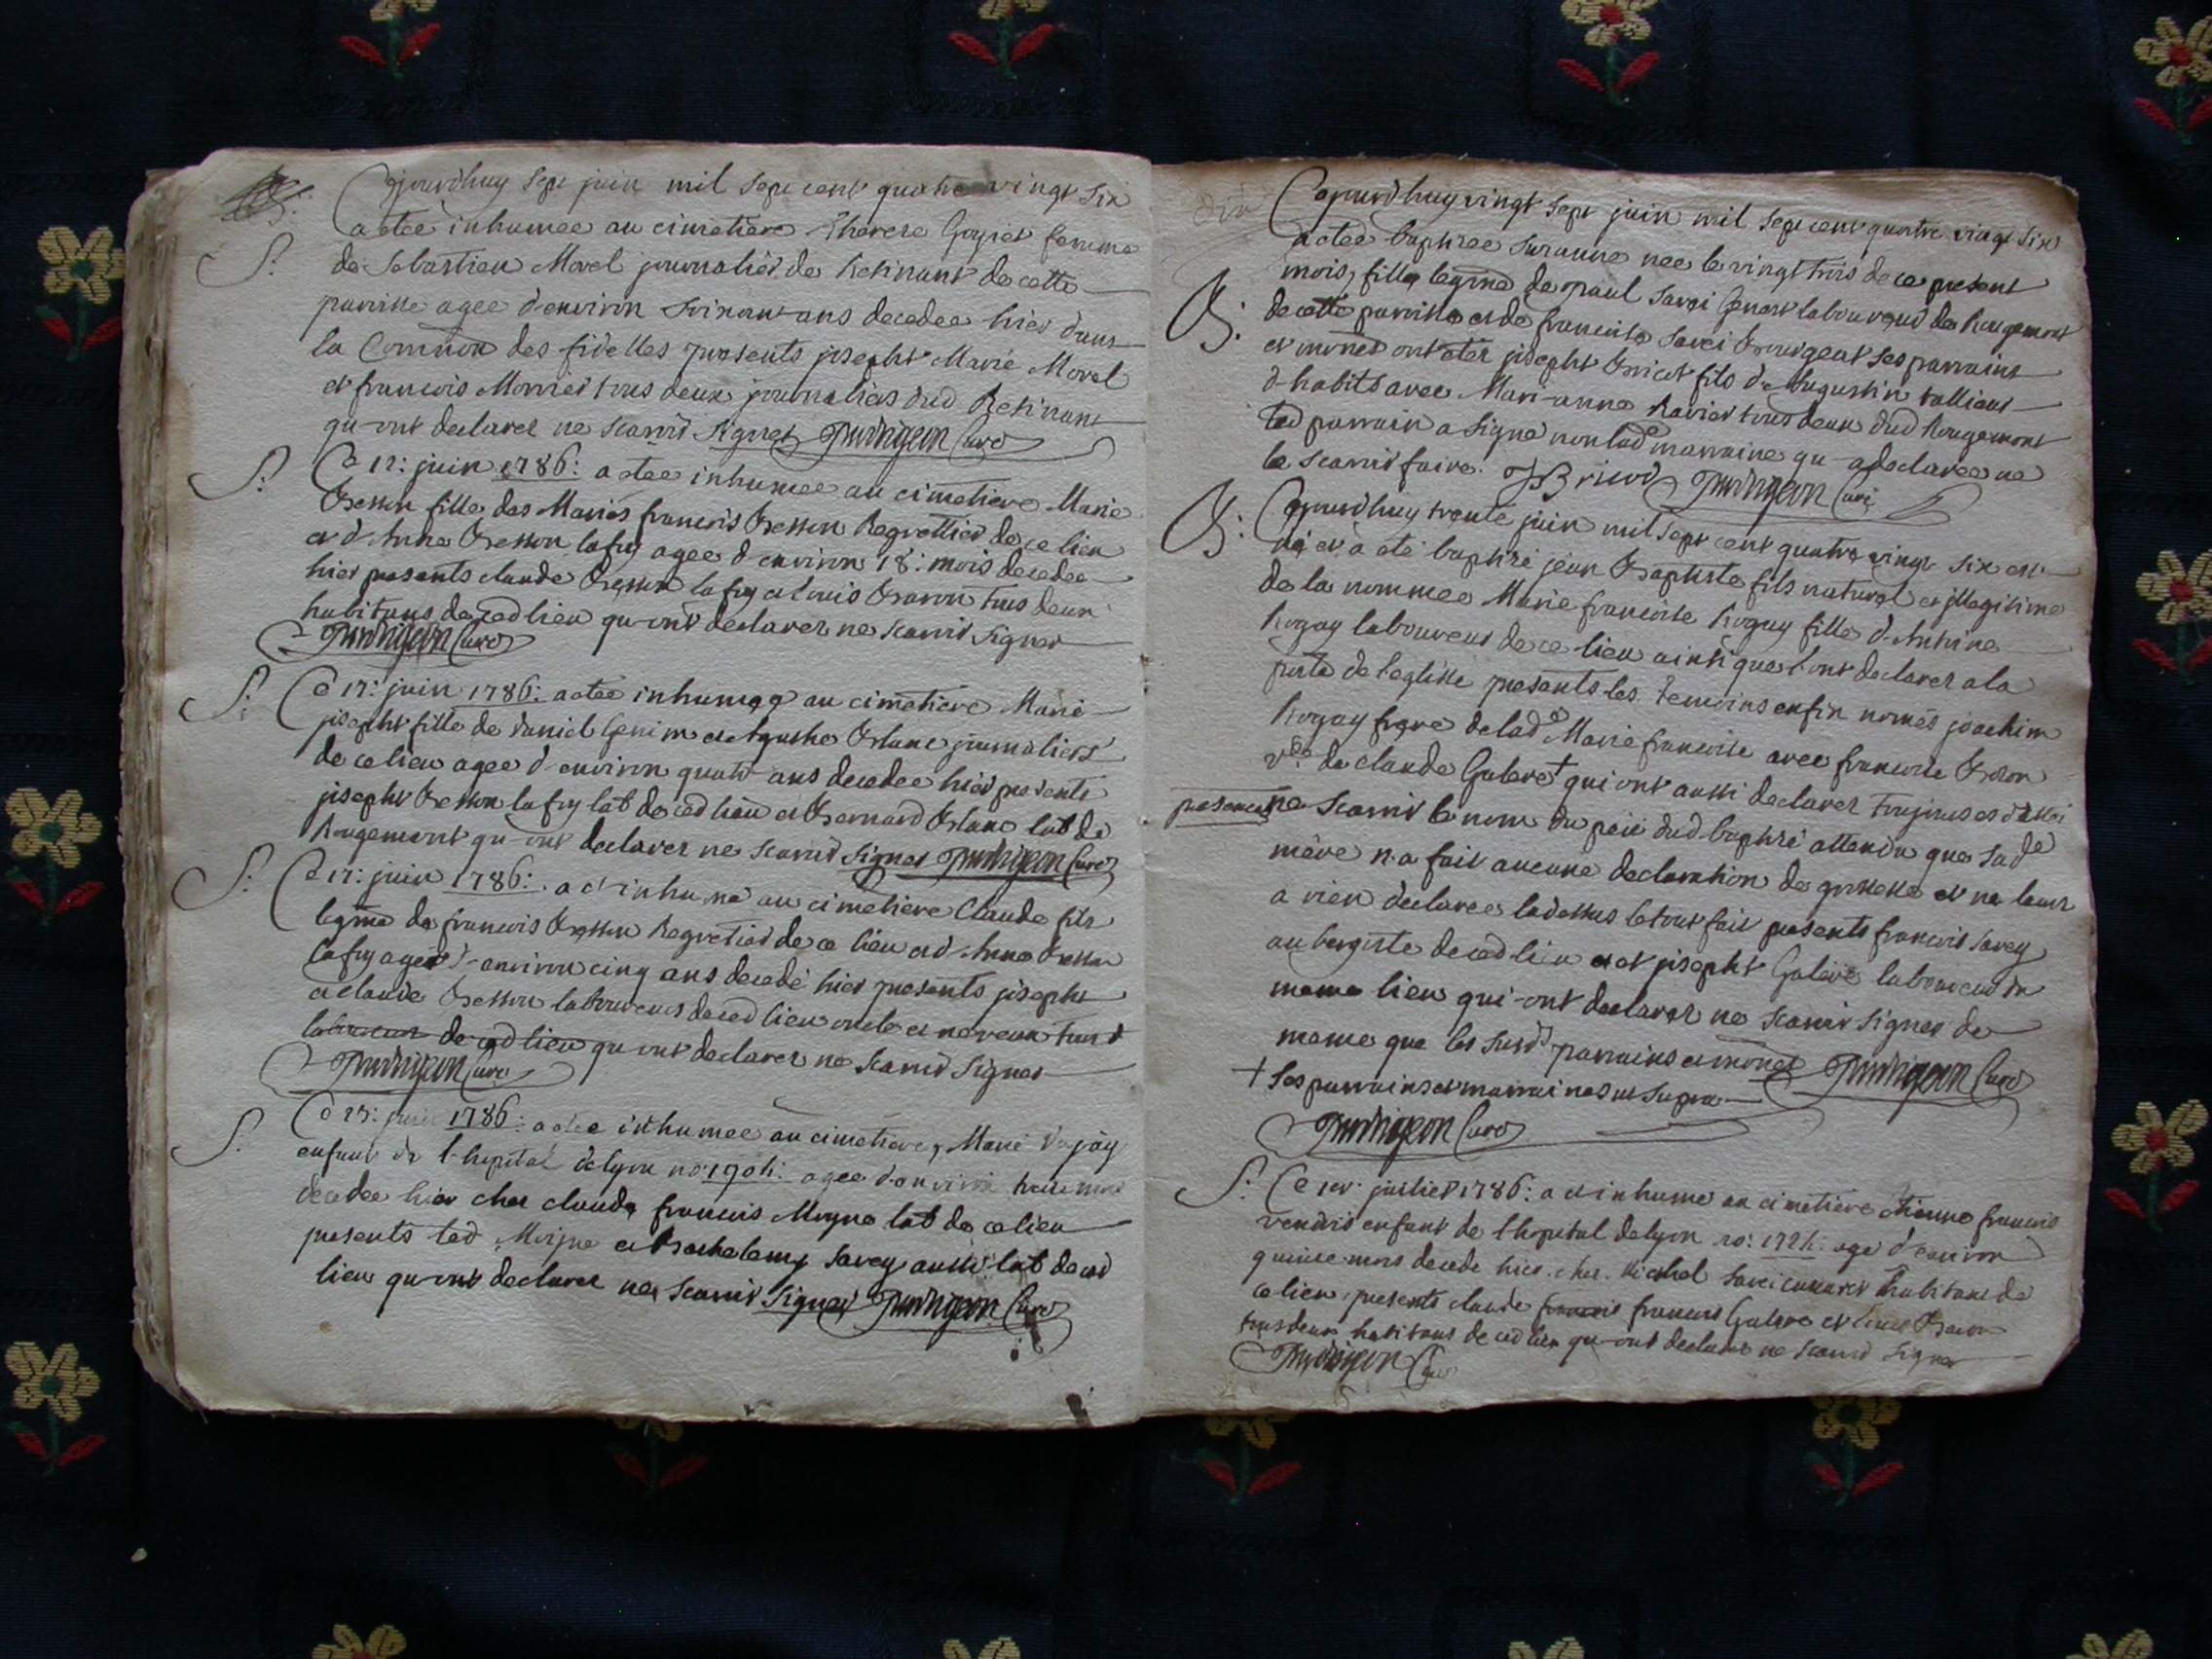 Cejourdhuy sept juin mil sept cent quatre vingt six
S: a etee inhumee au cimetiere Therese Goyet femme
de Sebastien Morel journalier de Resinant de cette
paroisse agee d'environ soixante ans decedee hier dans
la Comñion des fidelles presents joseph Marie Morel
et francois Monnier tous deux journaliers dud Resinant
qu-ont declarer ne scavoir signer Curé
S: Ce 12: juin 1786: a etee inhumee au cimetiere Marie
Besson fille des Mariés francois Besson Regrettier de ce lieu
et d'Anne Besson lafuy agee d'environ 18: mois decedee
hier presents claude Besson lafuy et louis Baron tous deux
habitans de ced lieu qu-ont declarer ne scavoir signer
Curé
S: Ce 17: juin 1786: a etee inhumee au cimetiere Marie
joseph fille de daniel et Agathe Blanc journaliers
de ce lieu agee d'environ quatre ans decedee hier presents
joseph Besson lafuy lab de ced lieu et Bernard Blanc lab de
Rougemont qu-ont declarer ne scavoir signer Curé
S: Ce 17: juin 1786: a et inhumé au cimetiere Claude fils
legme de francois Besson Regretier de ce lieu et d'Anne Besson
lafuy agé d'environ cinq ans decedé hier presents joseph
et claude Besson laboureurs de ced lieu oncle et neveux tous d
laboureur de ced lieu qu-ont declarer ne scavoir signer
Curé
S: Ce 23: juin 1786: a etee inhumee au cimetiere, Marie
enfant de l'hopital de lyon no: agee d'environ mois
decedee hier chez claude francois Moyne lab de ce lieu
presents led Moyne et Barthelemy Savey aussi lab de ced
lieu qu-ont declarer ne scavoir signer Curé
Cejourdhuy vingt sept juin mil sept cent quatre vingt six
a etee baptisee suzanne nee le vingt trois de ce present
mois, fille legme de paul Savei laboureur de Rougemont
B: de cette paroisse et de francoise Savei Bourgeat ses parrains
et mrines ont etér joseph Bricot fils d'Augustin tallieur
d'habits avec Marianne Ravier tous deux dud Rougemont
led parrain a signé non lade marraine qu-a declaree ne
le scavoir faire. JBricod Curé
B: Cejourdhuy trente juin mil sept cent quatre vingt six est
né et a eté baptisé jean Baptiste fils naturel et jllegitime
de la nommee Marie francoise Rogay fille d'Antoine
Rogay laboureur de ce lieu ainsi que l'ont declarer a la
porte de l'eglise presents les temoins enfin només joachim
Rogay frere de lade Marie francoise avec francoise
ve de claude Galere+ qui ont aussi declarer toujours
presence ne scavoir le nom du pere dud baptisé attendu que sade
mère n-a fait aucune declaration de grossesse et ne leur
a rien declaree ladessus le tout fait presents francois Savey
aubergiste de ced lieu et et joseph Galere laboureur du
meme lieu qui-ont declarer ne scavoir signer de
meme que les susds parrains et Curé
+ ses parrains et marraines ut supra
Curé
S: Ce 1er: juillet 1786: a et inhume au cimetiere etienne francois
enfant de l'hopital de lyon no: agé d'environ
quinze mois decede hier chez Michel Savei habitant de
ce lieu, presents claude francois francois Galere et louis Baron
tous deux habitans de ced lieu qu-ont declarer ne scavoir signer
Curé